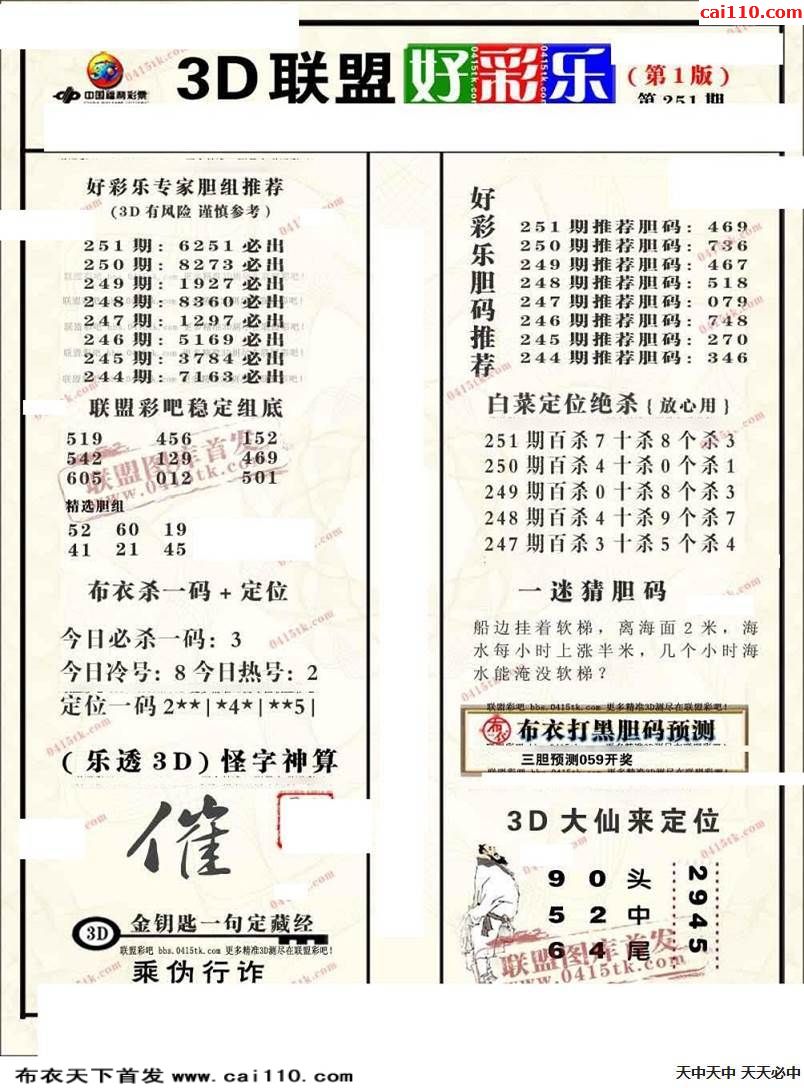 cai110.com
中国福利彩票
3D联盟好彩乐
(第1版)
第251期
好彩乐专家胆组推荐
(3D有风险 谨慎参考)
251期：6251必出
250期：8273必出
249期：1927必出
248期：8360必出
247期：1297必出
246期：5169必出
245期：3784必出
244期：7163必出
联盟彩吧稳定组底
519 456 152
542 129 469
605 012 501
联盟图库首发
www.0415tk.com
精选胆组
52 60 19
41 21 45
布衣杀一码+定位
今日必杀一码：3
今日冷号：8 今日热号：2
定位一码 2**|*4*|**5|
(乐透3D)怪字神算
催
3D 金钥匙一句定藏经
联盟彩吧 bbs.0415tk.com 更多精准3D测尽在联盟彩吧!
乘伪行诈
好彩乐胆码推荐
251期推荐胆码：469
250期推荐胆码：736
249期推荐胆码：467
248期推荐胆码：518
247期推荐胆码：079
246期推荐胆码：748
245期推荐胆码：270
244期推荐胆码：346
白菜定位绝杀{放心用}
251期百杀7十杀8个杀3
250期百杀4十杀0个杀1
249期百杀0十杀8个杀3
248期百杀4十杀9个杀7
247期百杀3十杀5个杀4
一迷猜胆码
船边挂着软梯，离海面2米，海
水每小时上涨半米，几个小时海
水能淹没软梯？
联盟彩吧 bbs.0415tk.com 更多精准3D测尽在联盟彩吧!
布衣 布衣打黑胆码预测
三胆预测059开奖
3D大仙来定位
9 0 头
5 2 中
6 4 尾
2945
联盟图库首发
www.0415tk.com
布衣天下首发 www.cai110.com
天中天中 天天必中